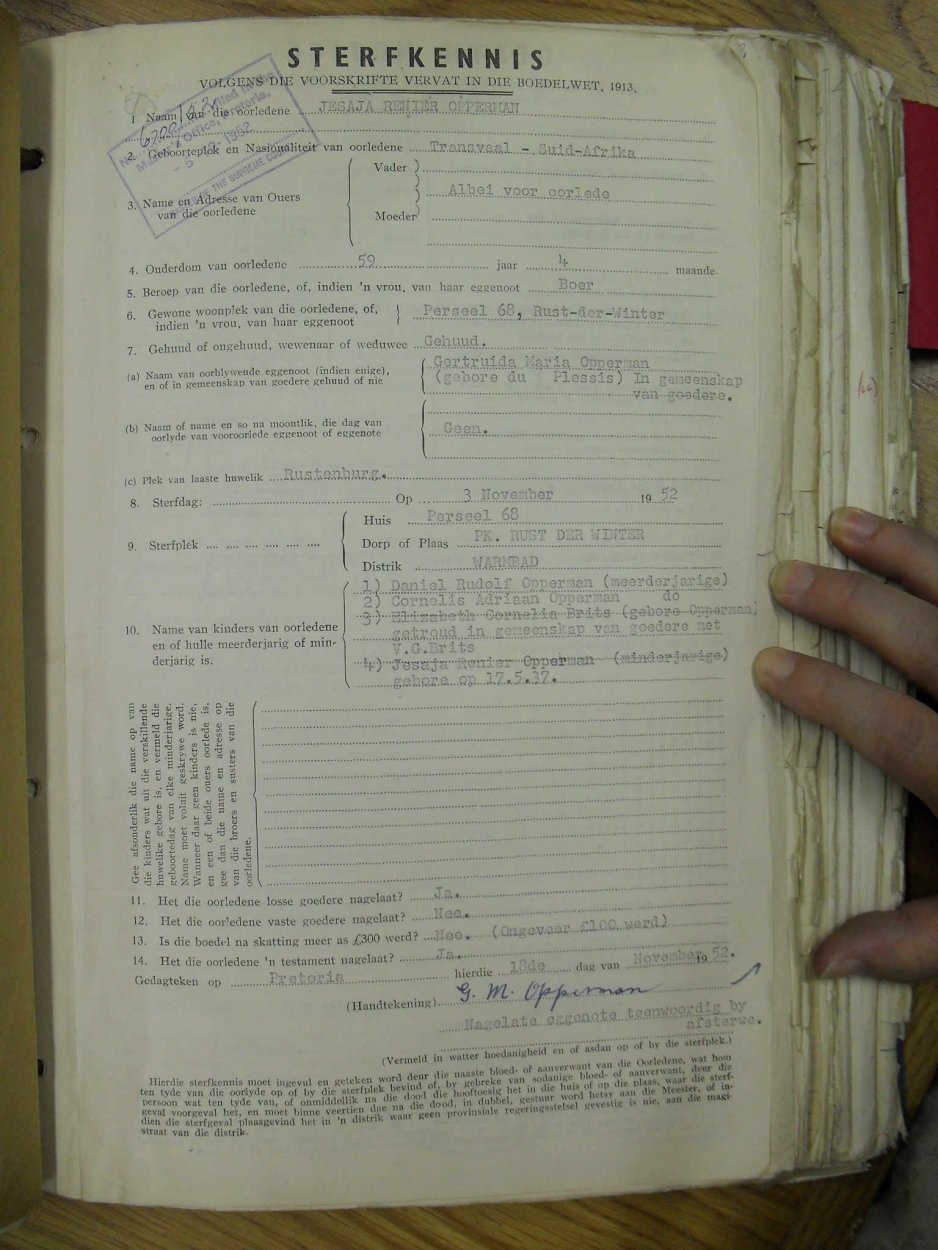 STERFKENNIS
VOLGENS DIE VOORSKRIFTE VERVAT IN DIE BOEDELWET, 1913.
1. Naam van die oorledene JESAJA RENIER OPPERMAN
6700/52
Master's Office, Pretoria.
THE SUPREME COURT
2. Geboorteplek en Nasionaliteit van oorledene Transvaal - Suid-Afrika
3. Name en Adresse van Ouers van die oorledene
Vader
Albei voor oorlede
Moeder
4. Ouderdom van oorledene 59 jaar 4 maande.
5. Beroep van die oorledene, of, indien 'n vrou, van haar eggenoot Boer
6. Gewone woonplek van die oorledene, of, indien 'n vrou, van haar eggenoot
Perseel 68, Rust-der-Winter
7. Gehuud of ongehuud, wewenaar of weduwee Gehuud.
(a) Naam van oorblywende eggenoot (indien enige), en of in gemeenskap van goedere gehuud of nie
Gertruida Maria Opperman
(gebore du Plessis) In gemeenskap
van goedere.
(b) Naam of name en so na moontlik, die dag van oorlyde van vooroorlede eggenoot of eggenote
Geen.
(c) Plek van laaste huwelik Rustenburg.
8. Sterfdag: Op 3 November 1952
9. Sterfplek
Huis Perseel 68
Dorp of Plaas PK. RUST DER WINTER
Distrik WARMBAD
10. Name van kinders van oorledene en of hulle meerderjarig of minderjarig is.
1) Daniel Rudolf Opperman (meerderjarige)
2) Cornelis Adriaan Opperman do
3) Elizabeth Cornelia Brits (gebore Opperman)
getroud in gemeenskap van goedere met
V.G.Brits
4) Jesaja Renier Opperman (minderjarige)
gebore op 17.5.37.
Gee afsonderlik die name op van
die kinders wat uit die verskillende
huwelike gebore is, en vermeld die
geboortedag van elke minderjarige.
Name moet voluit geskrywe word.
Wanneer daar geen kinders is nie,
en een of beide ouers oorlede is,
gee dan die name en adresse op
van die broers en susters van die
oorledene.
11. Het die oorledene losse goedere nagelaat? Ja.
12. Het die oorledene vaste goedere nagelaat? Nee.
13. Is die boedel na skatting meer as £300 werd? Nee. (Ongeveer £100 werd)
14. Het die oorledene 'n testament nagelaat? Ja.
Gedagteken op Pretoria hierdie 18de dag van November 1952.
(Handtekening) G. M. Opperman
Nagelate eggenote teenwoordig by
afsterwe.
(Vermeld in watter hoedanigheid en of asdan op of by die sterfplek.)
Hierdie sterfkennis moet ingevul en geteken word deur die naaste bloed- of aanverwant van die Oorledene, wat hom
ten tyde van die oorlyde op of by die sterfplek bevind of, by gebreke van sodanige bloed- of aanverwant, deur die
persoon wat ten tyde van, of onmiddellik na die dood die hooftoesig het in die huis of op die plaas, waar die sterf-
geval voorgeval het, en moet binne veertien dae na die dood, in dubbel, gestuur word hetsy aan die Meester, of in-
dien die sterfgeval plaasgevind het in 'n distrik waar geen provinsiale regeringsstelsel gevestig is nie, aan die magi-
straat van die distrik.